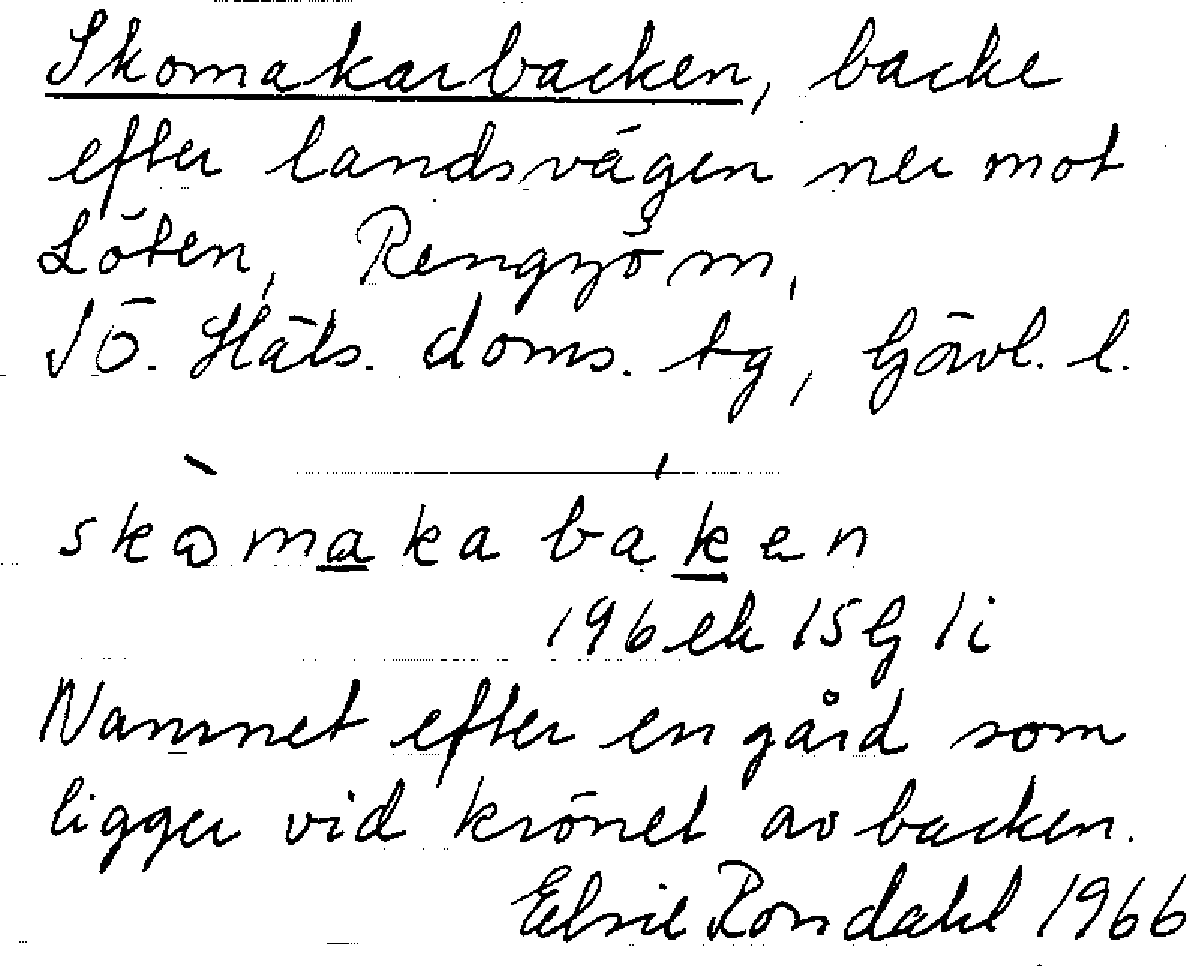 Skomakarbacken, backe
efter landsvägen ner mot
Löten, Rengsjö sn,
SÖ. Häls. doms. tg, Gävl. l.
skòmakabáken
196 ek 15G 1i
Namnet efter en gård som
ligger vid krönet av backen.
Elsie Rondahl 1966